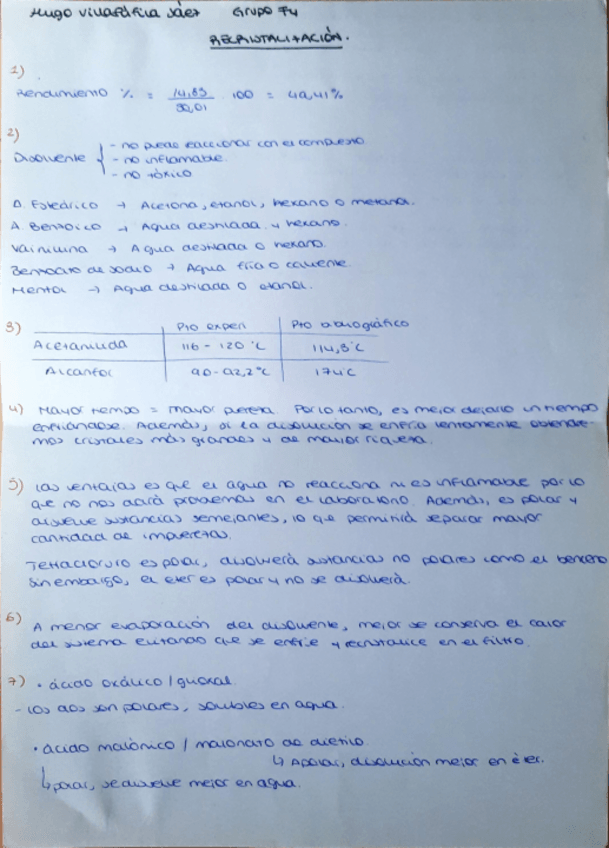 Hugo Villafáfila Sáez Grupo F4
RECRISTALIZACIÓN.
1)
Rendimiento % = 14,83 / 30,01 · 100 = 49,41%
2)
Disolvente { - no puede reaccionar con el compuesto
- no inflamable.
- no tóxico
A. Esteárico → Acetona, etanol, hexano o metanol.
A. Benzoico → Agua destilada y hexano.
Vainillina → Agua destilada o hexano.
Benzoato de sodio → Agua fría o caliente
Mentol → Agua destilada o etanol.
3) Pto experi Pto bibliográfico
Acetanilida 116 - 120 °C 114,3 °C
Alcanfor 90 - 92,2 °C 174 °C
4) Mayor tiempo = mayor pureza. Por lo tanto, es mejor dejarlo un tiempo
enfriándose. Además, si la disolución se enfría lentamente obtendre-
mos cristales más grandes y de mayor riqueza.
5) Las ventajas es que el agua no reacciona ni es inflamable por lo
que no nos dará problemas en el laboratorio. Además, es polar y
disuelve sustancias semejantes, lo que permitirá separar mayor
cantidad de impurezas.
Tetracloruro es polar, disolverá sustancias no polares como el benceno
sin embargo, el éter es polar y no se disolverá.
6) A menor evaporación del disolvente, mejor se conserva el calor
del sistema evitando que se enfríe y recristalice en el filtro.
7) · ácido oxálico / glioxal.
- Los dos son polares, solubles en agua.
· ácido malónico / malonato de dietilo
↳ Apolar, disolución mejor en éter.
↳ polar, se disuelve mejor en agua.